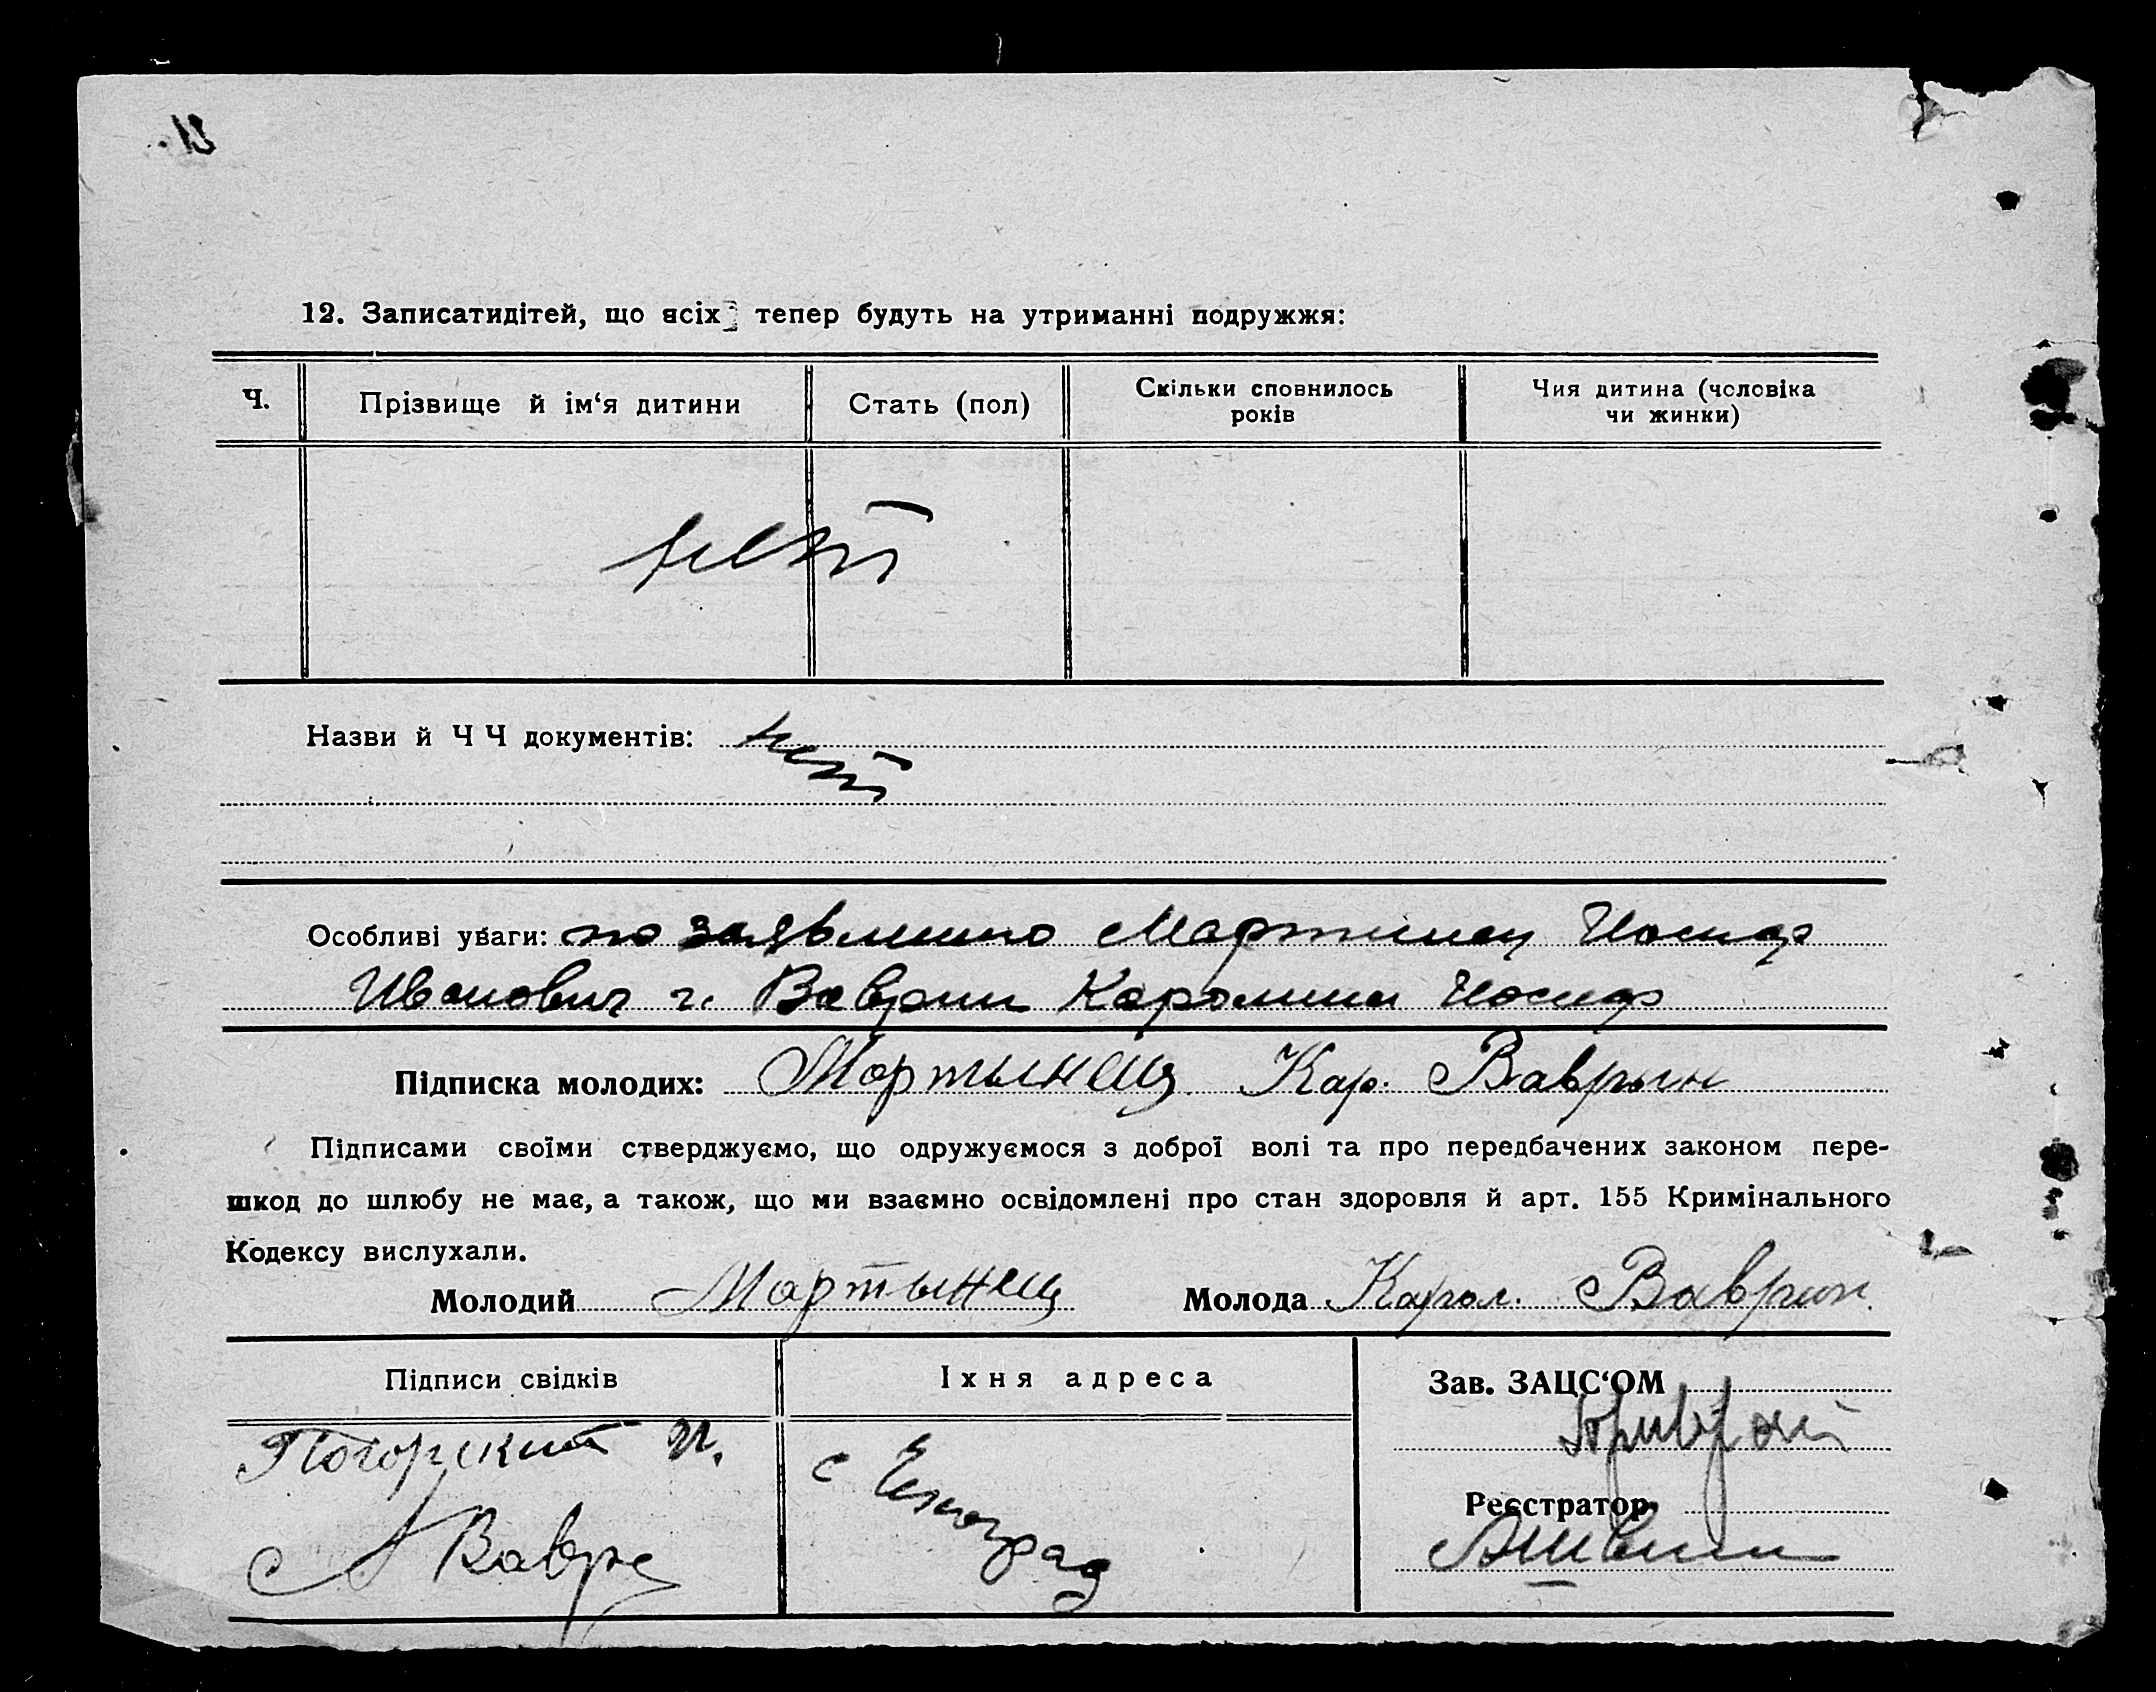 12. Записатидітей, що всіх тепер будуть на утриманні подружжя:
Ч. Прізвище й ім‘я дитини Стать (пол) Скільки сповнилось років Чия дитина (чоловіка чи жинки)
нет
Назви й Ч Ч документів: нет
Особливі уваги: по заявлению Мартинец Иосиф
Иванович г. Ваврин Каролина Иосиф
Підписка молодих: Мартынец Кар. Ваврын
Підписами своїми стверджуємо, що одружуємося з доброї волі та про передбачених законом пере-
шкод до шлюбу не має, а також, що ми взаємно освідомлені про стан здоровля й арт. 155 Кримінального
Кодексу вислухали.
Молодий Мартынец Молода Карол. Ваврин.
Підписи свідків Їхня адреса Зав. ЗАЦС‘ОМ
Погорский И.
с
Реєстратор